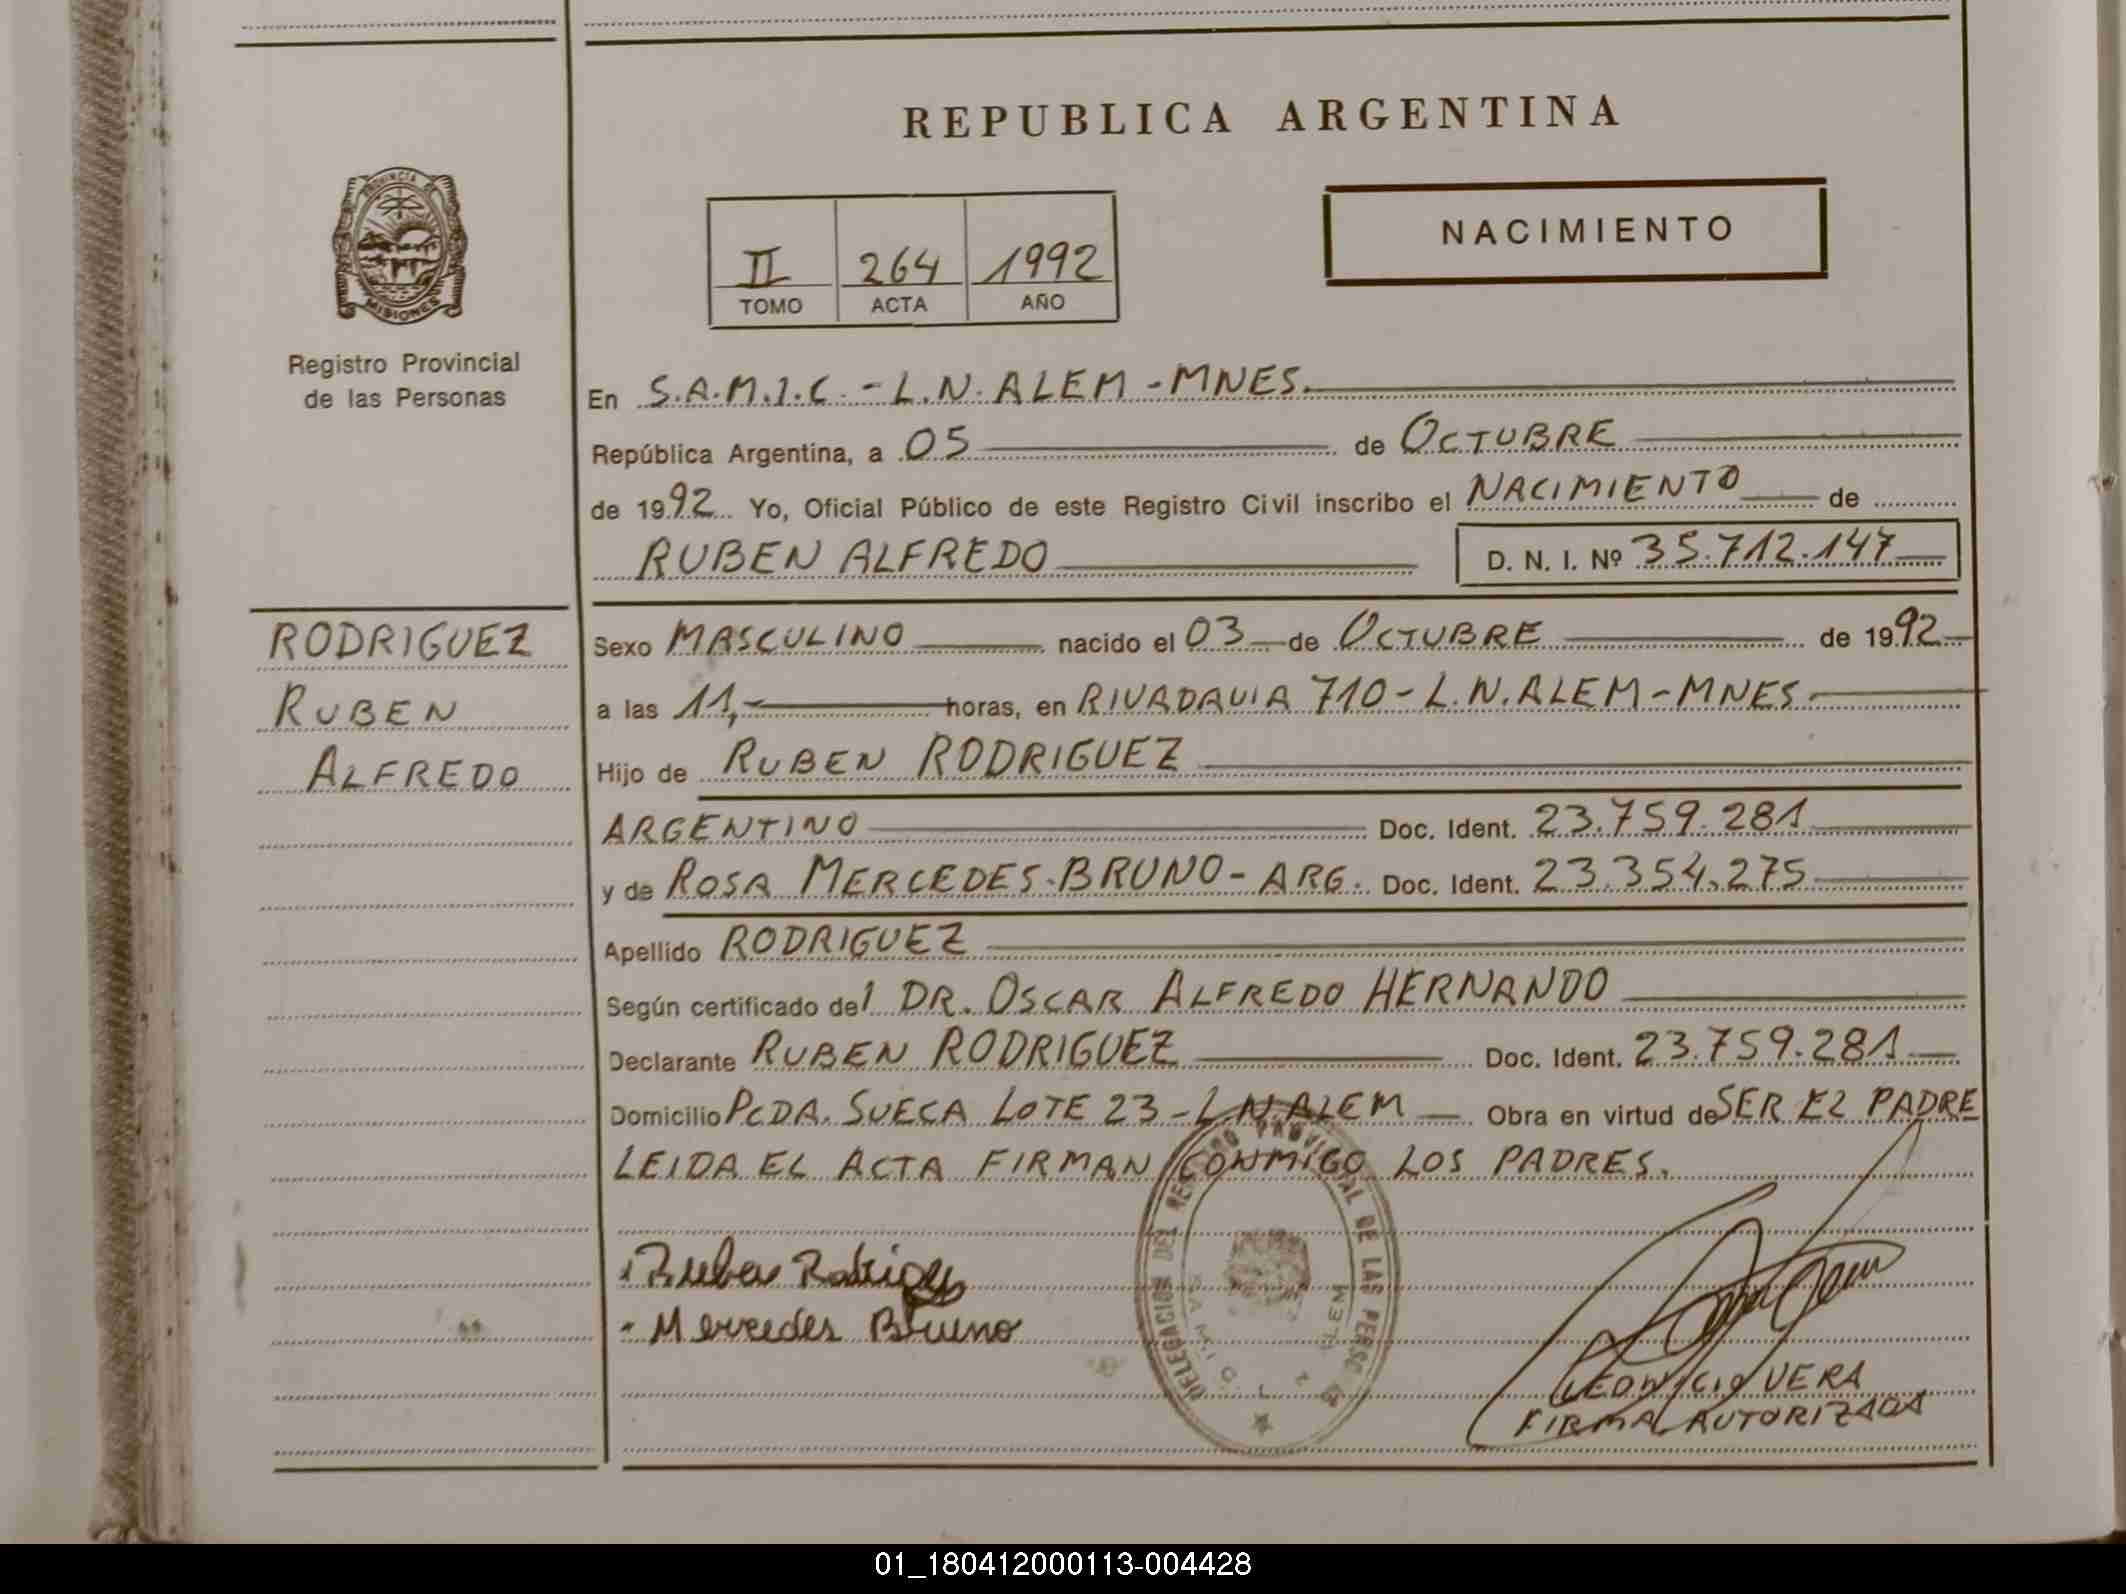 REPUBLICA ARGENTINA
PROVINCIA DE
MISIONES
Registro Provincial
de las Personas
II 264 1992
TOMO ACTA AÑO
NACIMIENTO
En S.A.M.I.C.-L.N.ALEM-MNES.
República Argentina, a 05 de OCTUBRE
de 1992 Yo, Oficial Público de este Registro Civil inscribo el NACIMIENTO de
RUBEN ALFREDO D. N. I. Nº 35.712.147
RODRIGUEZ
RUBEN
ALFREDO
Sexo MASCULINO nacido el 03 de OCTUBRE de 1992
a las 11, horas, en RIVADAVIA 710-L.N.ALEM-MNES
Hijo de RUBEN RODRIGUEZ
ARGENTINO Doc. Ident. 23.759.281
y de ROSA MERCEDES BRUNO-ARG. Doc. Ident. 23.354.275
Apellido RODRIGUEZ
Según certificado del DR. OSCAR ALFREDO HERNANDO
Declarante RUBEN RODRIGUEZ Doc. Ident. 23.759.281
Domicilio PCDA. SUECA LOTE 23-L.N.ALEM Obra en virtud de SER EL PADRE
LEIDA EL ACTA FIRMAN CONMIGO LOS PADRES.
Ruben Rodriguez
- Mercedes Bruno
DELEGACION DEL REGISTRO PROVINCIAL DE LAS PERSONAS
ALEM
LEONICIO VERA
FIRMA AUTORIZADA
01_180412000113-004428